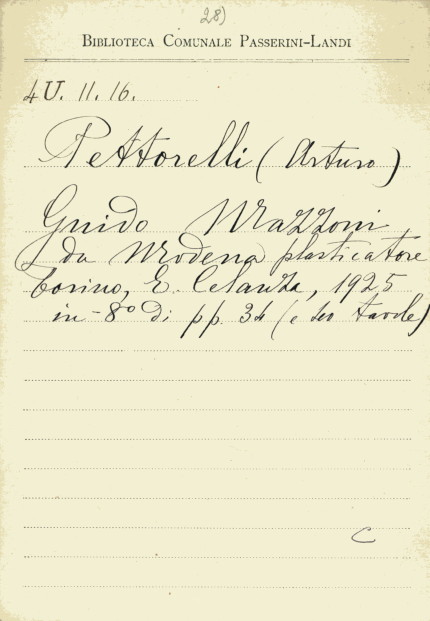 28)
BIBLIOTECA COMUNALE PASSERINI-LANDI
4U. 11. 16.
Pettorelli (Arturo)
Guido Mazzoni
da Modena plasticatore
Torino, E. Celanza, 1925
in-8º di pp. 34 (e tavole)
C